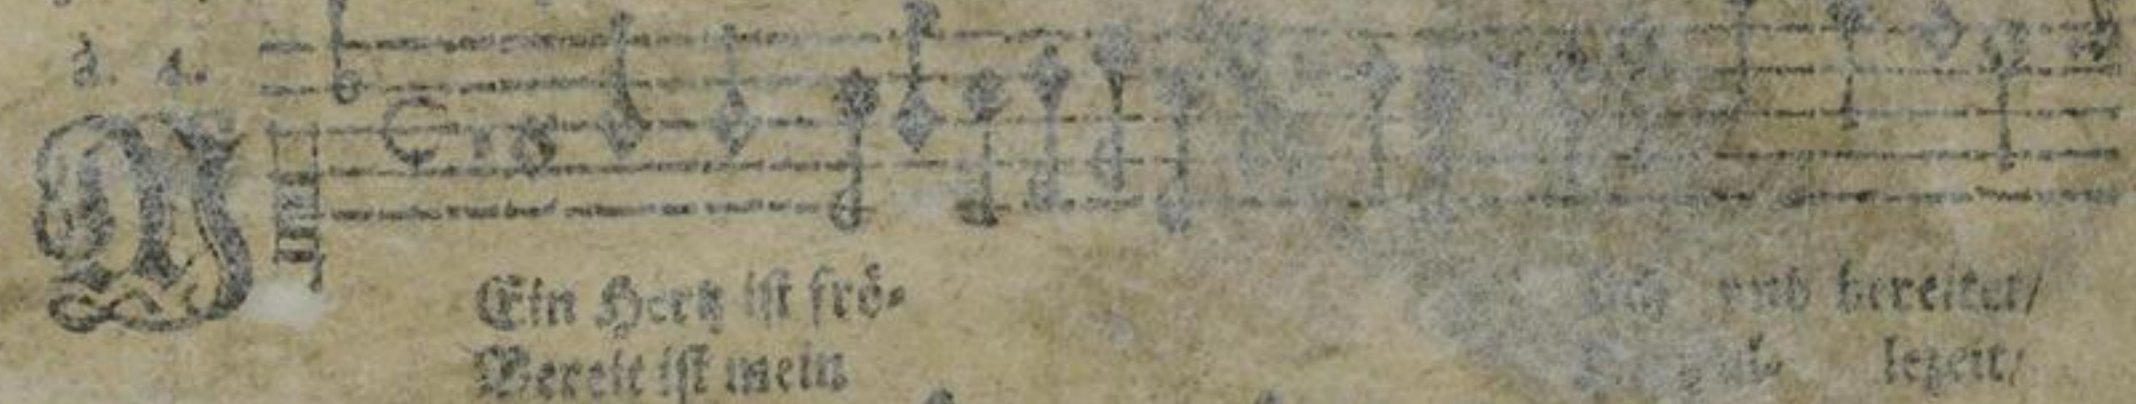 à. 4.
M
Ein Hertz ist frö-lich vnd bereitet/
Bereit ist mein letzeit/